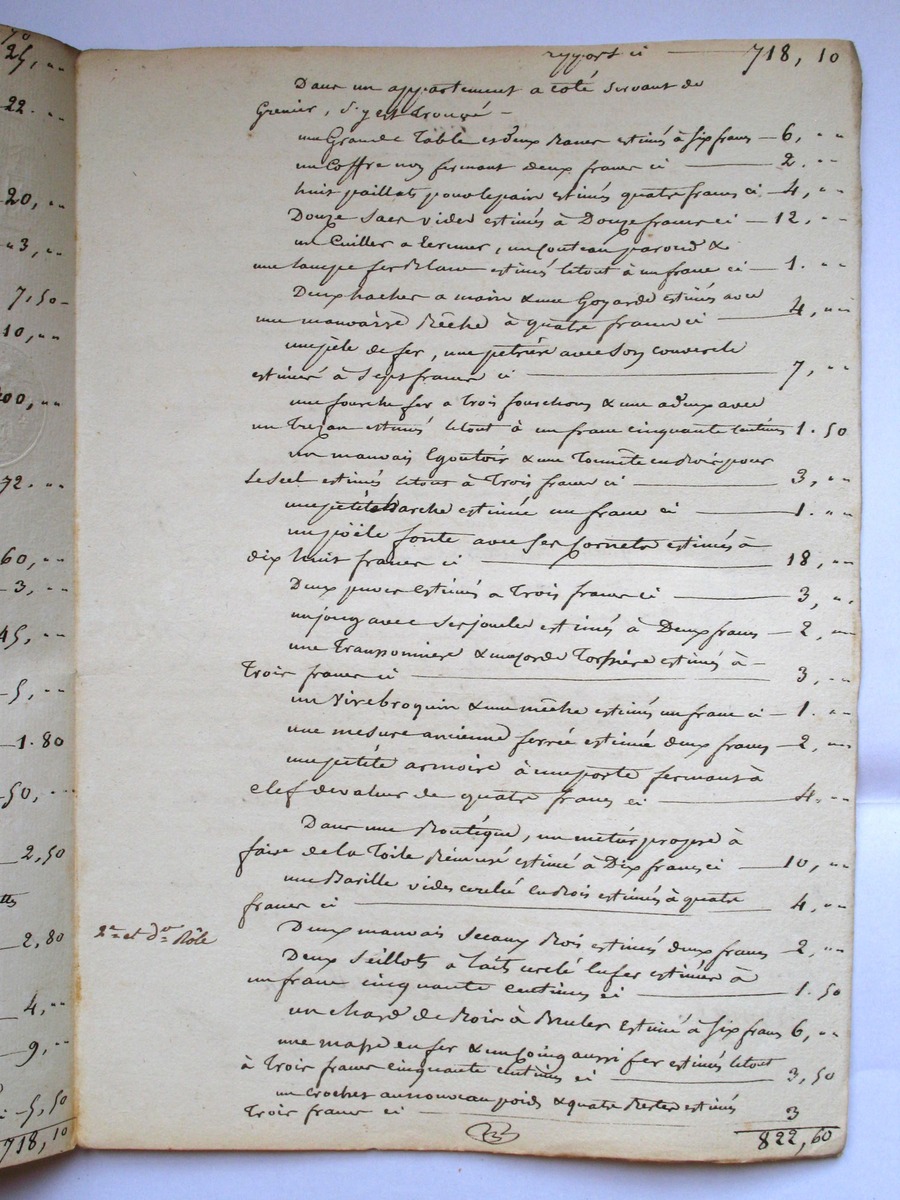 25, ""
22. ""
20, ""
"3, ""
7,50
10, ""
00, ""
72. ""
60, ""
3, ""
45, ""
5, ""
1.80
50, ""
2,50
2,80
4, ""
9, ""
5,50
718,10
report ci 718, 10
Dans un appartement a coté servant de
Grenier, s'y est trouvé -
une Grande Table et deux Bancs estimés à six francs 6, ""
un Coffre non fermant deux francs ci 2. ""
huit paillats pour le pain estimés quatre francs ci 4, ""
Douze sacs vides estimés à Douze francs ci 12, ""
un Cuiller a Ecrumer, un Couteau paroud &
une lampe fer Blanc estimés le tout à un franc ci 1. ""
Deux haches a main & une Goyarde estimés avec
une mauvaise Bêche à quatre francs ci 4, ""
une pèle de fer, une petrière avec son couvercle
estimés à Sept francs ci 7, ""
une fourche fer a Trois fourchons & une a deux avec
un Trejan estimés le tout à un franc cinquante centimes 1.50
un mauvais Egoutoir & une en Bois pour
Le Sel estimés le tout à Trois francs ci 3, ""
une petite arche estimée un franc ci 1. ""
un poële fonte avec ses Cornets estimés à
dix huit francs ci 18, ""
Deux estimés a Trois francs ci 3, ""
un joug avec ses joucles estimés à Deux francs 2, ""
une & estimés à -
Trois francs ci 3, ""
un Virebroquin & une mêche estimés un franc ci 1. ""
une mesure ancienne ferrée estimée deux francs 2, ""
une petite armoire à une porte fermant à
clef de valeur de quatre francs ci 4. ""
Dans une Boutique, un métier propre à
faire de la Toile estimé à Dix francs ci 10, ""
une Barille vides cerclée en Bois estimés à quatre
francs ci 4, ""
2me et der Rôle
Deux mauvais Seaux Bois estimés deux francs 2, ""
Deux Seillots à lait cerclé en fer estimés à
un franc cinquante centimes ci 1.50
un chard de Bois à Bruler estimé à six francs 6, ""
une masse en fer & un Coing aussi fer estimés le tout
à Trois francs cinquante centimes ci 3,50
un crochet au nouveau poids & quatre estimés
Trois francs ci 3
822,60